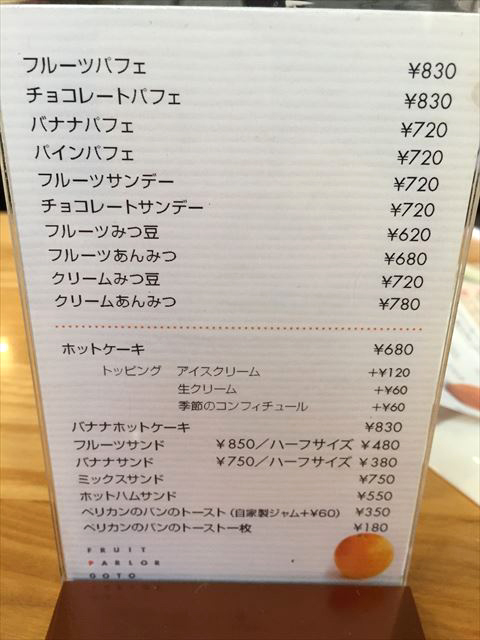 フルーツパフェ ¥830
チョコレートパフェ ¥830
バナナパフェ ¥720
パインパフェ ¥720
フルーツサンデー ¥720
チョコレートサンデー ¥720
フルーツみつ豆 ¥620
フルーツあんみつ ¥680
クリームみつ豆 ¥720
クリームあんみつ ¥780
ホットケーキ ¥680
トッピング アイスクリーム +¥120
生クリーム +¥60
季節のコンフィチュール +¥60
バナナホットケーキ ¥830
フルーツサンド ¥850/ハーフサイズ ¥480
バナナサンド ¥750/ハーフサイズ ¥380
ミックスサンド ¥750
ホットハムサンド ¥550
ペリカンのパンのトースト(自家製ジャム+¥60) ¥350
ペリカンのパンのトースト一枚 ¥180
FRUIT
PARLOR
GOTO